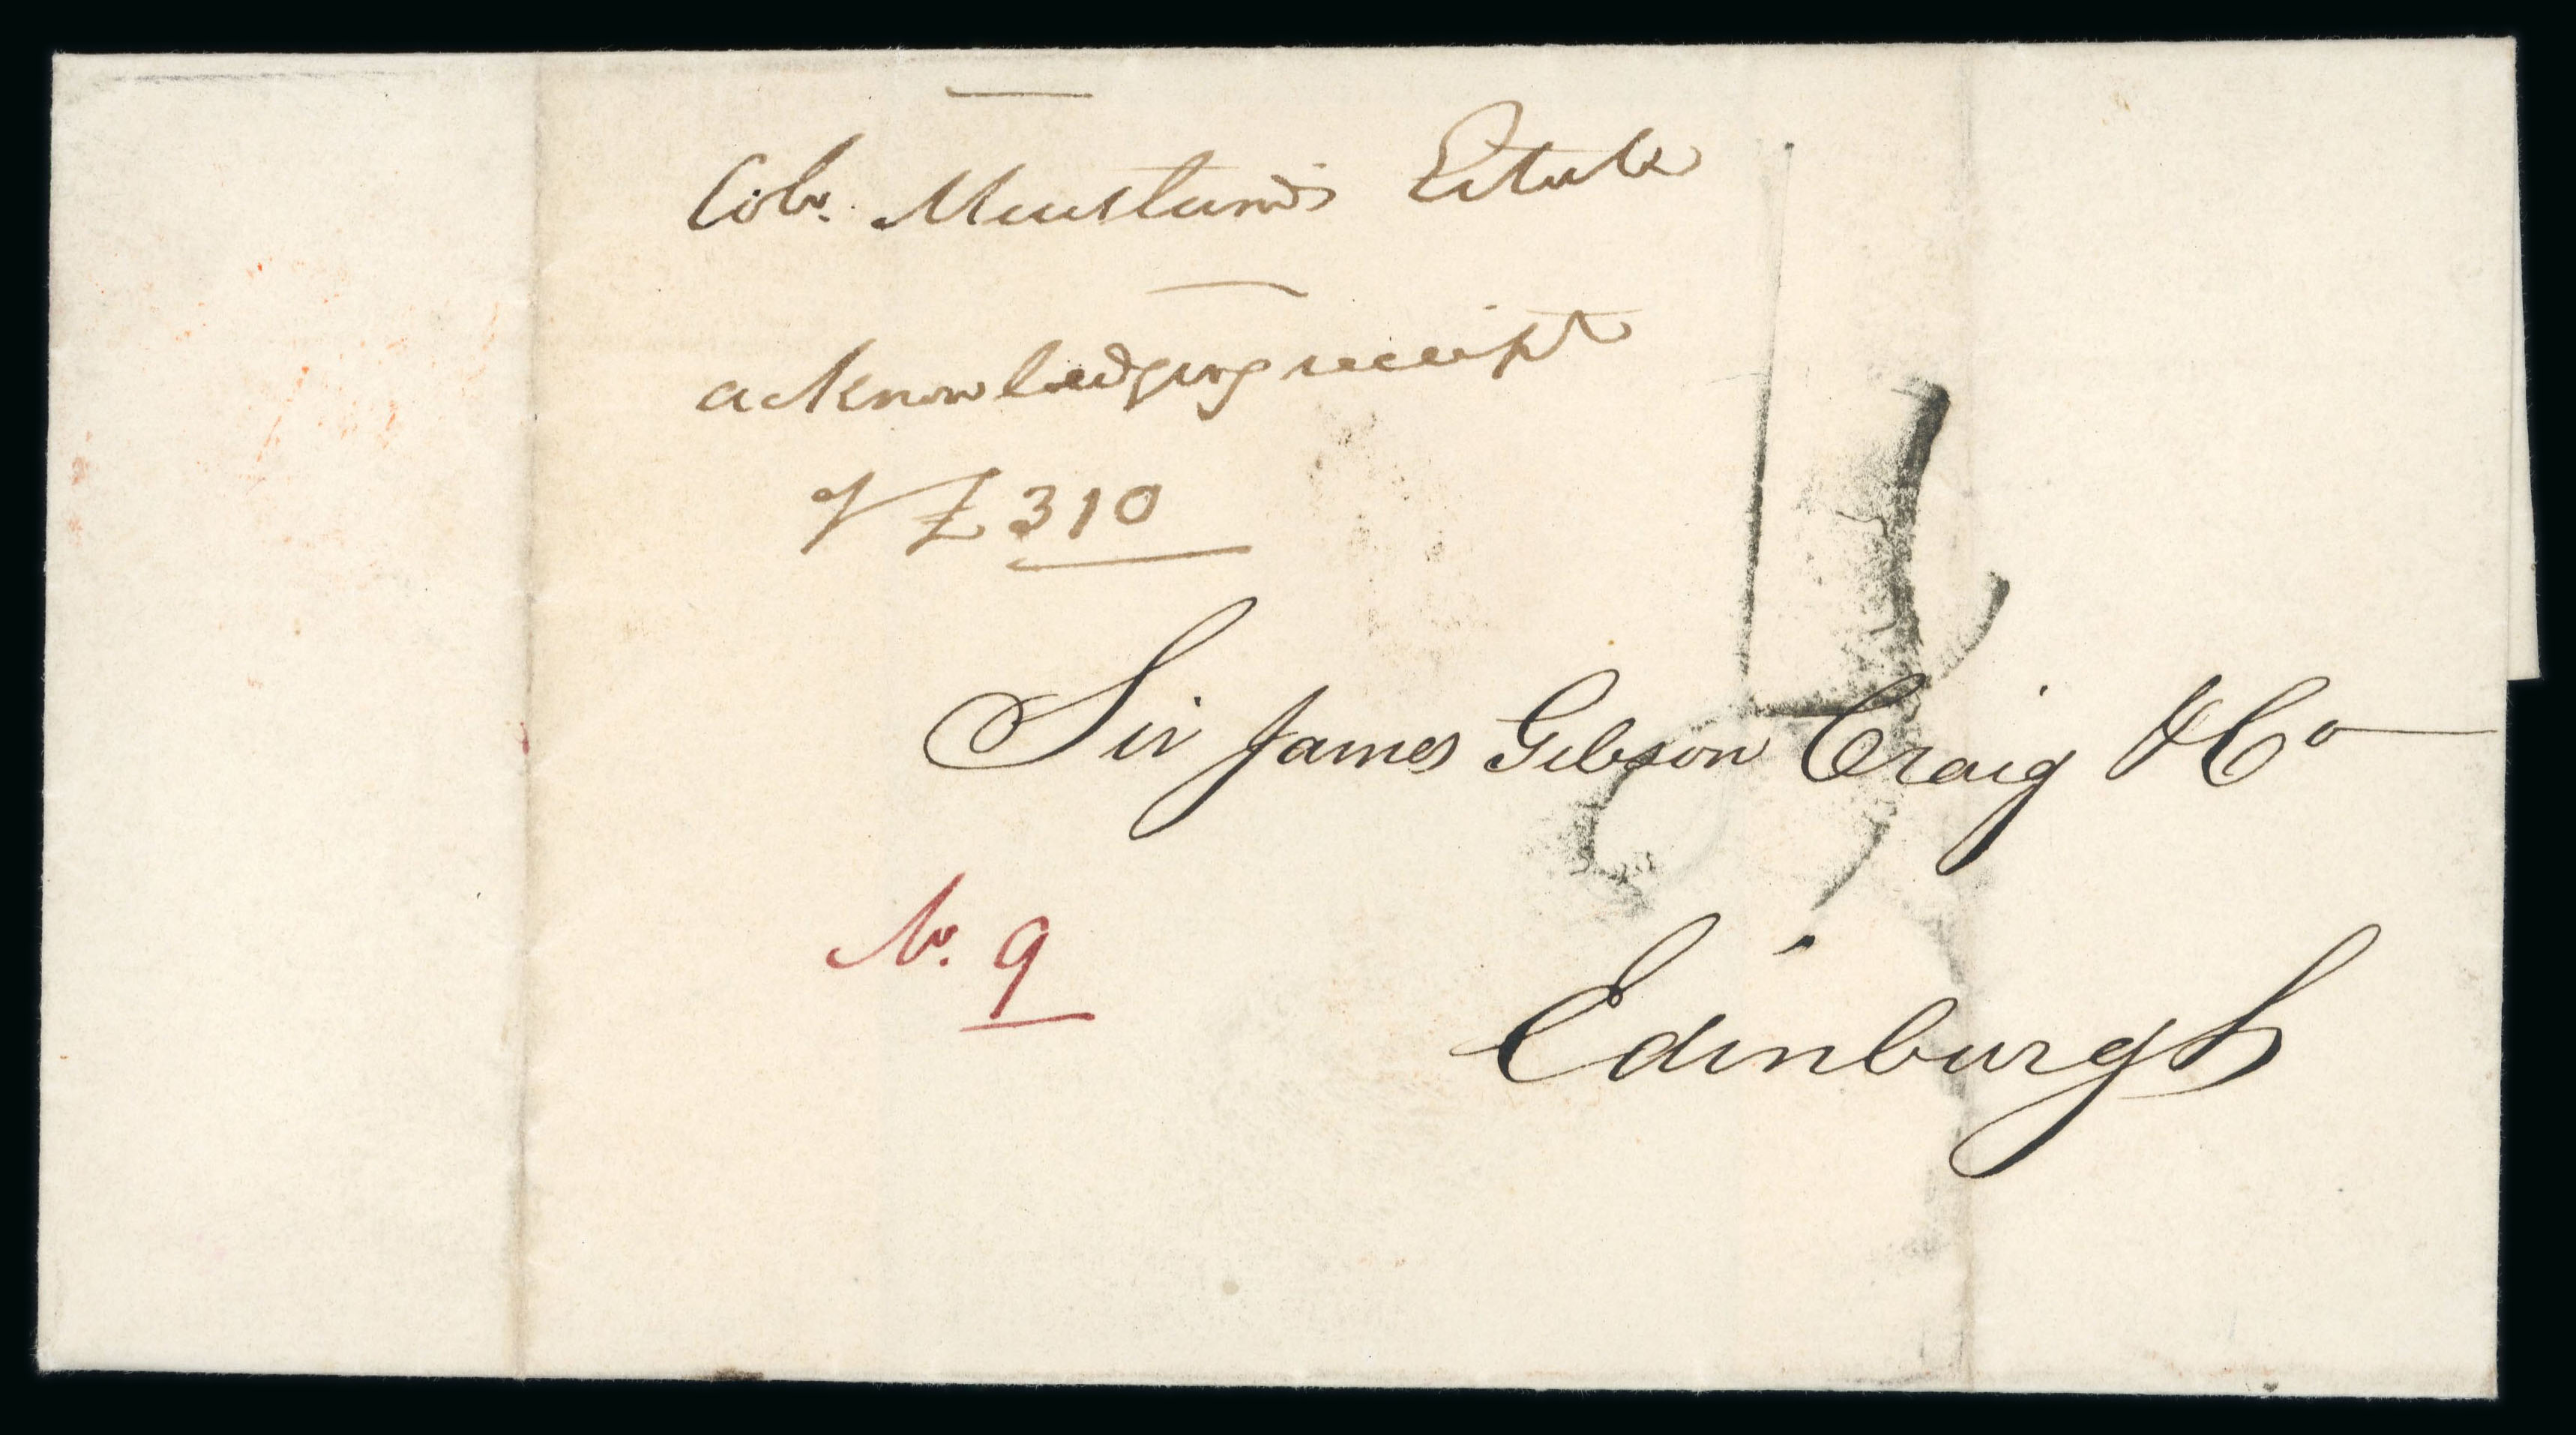 Colo. Muirland's Estate
acknowledging receipt
of £310
Sir James Gibson Craig & Co
No. 9
Edinburgh